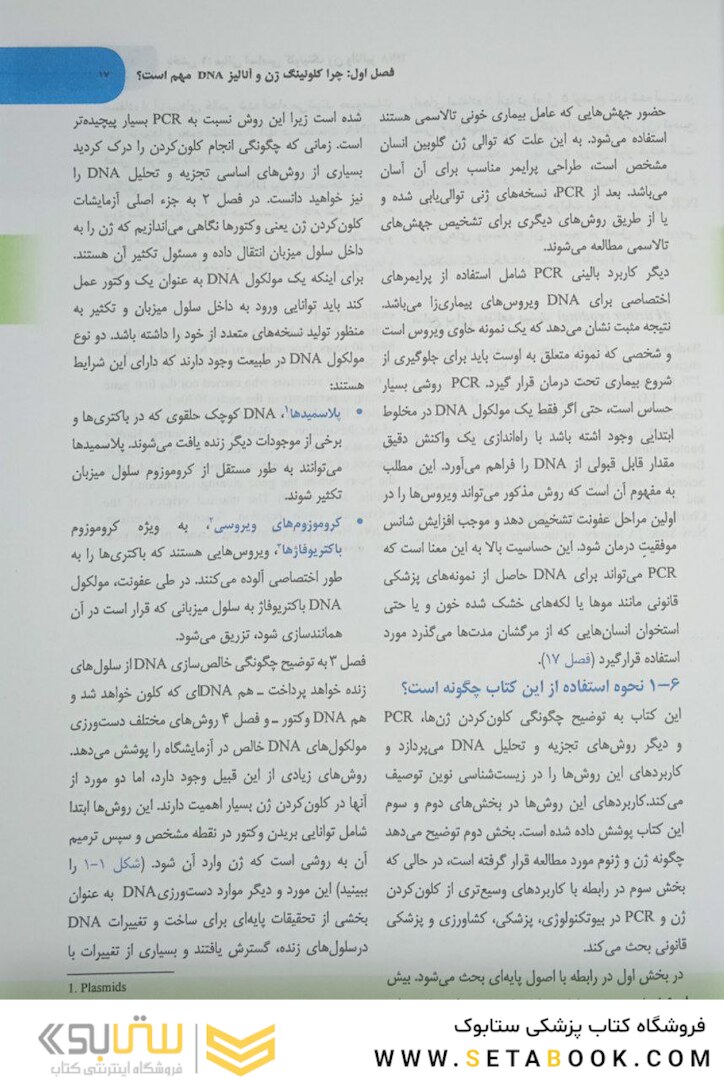 فصل اول: چرا کلونینگ ژن و آنالیز DNA مهم است؟ ۱۷
حضور جهش‌هایی که عامل بیماری خونی تالاسمی هستند
استفاده می‌شود. به این علت که توالی ژن گلوبین انسان
مشخص است، طراحی پرایمر مناسب برای آن آسان
می‌باشد. بعد از PCR، نسخه‌های ژنی توالی‌یابی شده و
یا از طریق روش‌های دیگری برای تشخیص جهش‌های
تالاسمی مطالعه می‌شوند.
دیگر کاربرد بالینی PCR شامل استفاده از پرایمرهای
اختصاصی برای DNA ویروس‌های بیماری‌زا می‌باشد.
نتیجه مثبت نشان می‌دهد که یک نمونه حاوی ویروس است
و شخصی که نمونه متعلق به اوست باید برای جلوگیری از
شروع بیماری تحت درمان قرار گیرد. PCR روشی بسیار
حساس است، حتی اگر فقط یک مولکول DNA در مخلوط
ابتدایی وجود اشته باشد با راه‌اندازی یک واکنش دقیق
مقدار قابل قبولی از DNA را فراهم می‌آورد. این مطلب
به مفهوم آن است که روش مذکور می‌تواند ویروس‌ها را در
اولین مراحل عفونت تشخیص دهد و موجب افزایش شانس
موفقیت درمان شود. این حساسیت بالا به این معنا است که
PCR می‌تواند برای DNA حاصل از نمونه‌های پزشکی
قانونی مانند موها یا لکه‌های خشک شده خون و یا حتی
استخوان انسان‌هایی که از مرگشان مدت‌ها می‌گذرد مورد
استفاده قرارگیرد (فصل ۱۷).
۱-۶ نحوه استفاده از این کتاب چگونه است؟
این کتاب به توضیح چگونگی کلون‌کردن ژن‌ها، PCR
و دیگر روش‌های تجزیه و تحلیل DNA می‌پردازد و
کاربردهای این روش‌ها را در زیست‌شناسی نوین توصیف
می‌کند.کاربردهای این روش‌ها در بخش‌های دوم و سوم
این کتاب پوشش داده شده است. بخش دوم توضیح می‌دهد
چگونه ژن و ژنوم مورد مطالعه قرار گرفته است، در حالی که
بخش سوم در رابطه با کاربردهای وسیع‌تری از کلون‌کردن
ژن و PCR در بیوتکنولوژی، پزشکی، کشاورزی و پزشکی
قانونی بحث می‌کند.
در بخش اول در رابطه با اصول پایه‌ای بحث می‌شود. بیش
شده است زیرا این روش نسبت به PCR بسیار پیچیده‌تر
است. زمانی که چگونگی انجام کلون‌کردن را درک کردید
بسیاری از روش‌های اساسی تجزیه و تحلیل DNA را
نیز خواهید دانست. در فصل ۲ به جزء اصلی آزمایشات
کلون‌کردن ژن یعنی وکتورها نگاهی می‌اندازیم که ژن را به
داخل سلول میزبان انتقال داده و مسئول تکثیر آن هستند.
برای اینکه یک مولکول DNA به عنوان یک وکتور عمل
کند باید توانایی ورود به داخل سلول میزبان و تکثیر به
منظور تولید نسخه‌های متعدد از خود را داشته باشد. دو نوع
مولکول DNA در طبیعت وجود دارند که دارای این شرایط
هستند:
• پلاسمیدها۱، DNA کوچک حلقوی که در باکتری‌ها و
برخی از موجودات دیگر زنده یافت می‌شوند. پلاسمیدها
می‌توانند به طور مستقل از کروموزوم سلول میزبان
تکثیر شوند.
• کروموزوم‌های ویروسی۲، به ویژه کروموزوم
باکتریوفاژها۳، ویروس‌هایی هستند که باکتری‌ها را به
طور اختصاصی آلوده می‌کنند. در طی عفونت، مولکول
DNA باکتریوفاژ به سلول میزبانی که قرار است در آن
همانندسازی شود، تزریق می‌شود.
فصل ۳ به توضیح چگونگی خالص‌سازی DNA از سلول‌های
زنده خواهد پرداخت ـ هم DNAای که کلون خواهد شد و
هم DNA وکتور ـ و فصل ۴ روش‌های مختلف دست‌ورزی
مولکول‌های DNA خالص در آزمایشگاه را پوشش می‌دهد.
روش‌های زیادی از این قبیل وجود دارد، اما دو مورد از
آنها در کلون‌کردن ژن بسیار اهمیت دارند. این روش‌ها ابتدا
شامل توانایی بریدن وکتور در نقطه مشخص و سپس ترمیم
آن به روشی است که ژن وارد آن شود. (شکل ۱-۱ را
ببینید) این مورد و دیگر موارد دست‌ورزیDNA به عنوان
بخشی از تحقیقات پایه‌ای برای ساخت و تغییرات DNA
درسلول‌های زنده، گسترش یافتند و بسیاری از تغییرات با
1. Plasmids
فروشگاه کتاب پزشکی ستابوک
WWW.SETABOOK.COM
ستابوک
فروشگاه اینترنتی کتاب